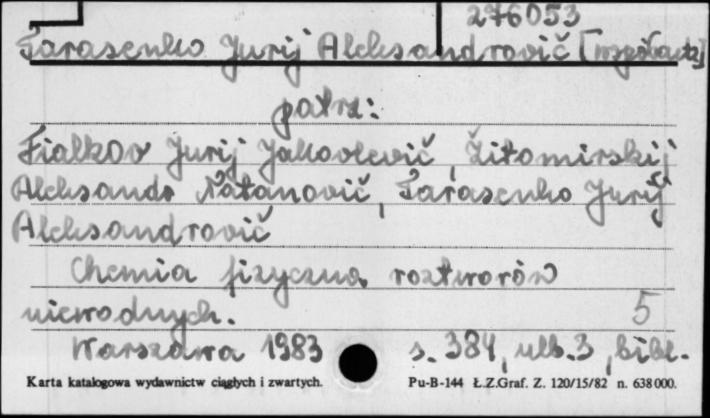 276053
Tarasenko Jurij Aleksandrovič [współautor]
patrz:
Fialkov Jurij Jakovlevič, Žitomirskij
Aleksandr Natanovič, Tarasenko Jurij
Aleksandrovič
Chemia fizyczna roztworów
niewodnych. 5
Warszawa 1983 s. 384, nlb. 3, bibl.
Karta katalogowa wydawnictw ciągłych i zwartych. Pu-B-144 Ł.Z.Graf. Z. 120/15/82 n. 638000.